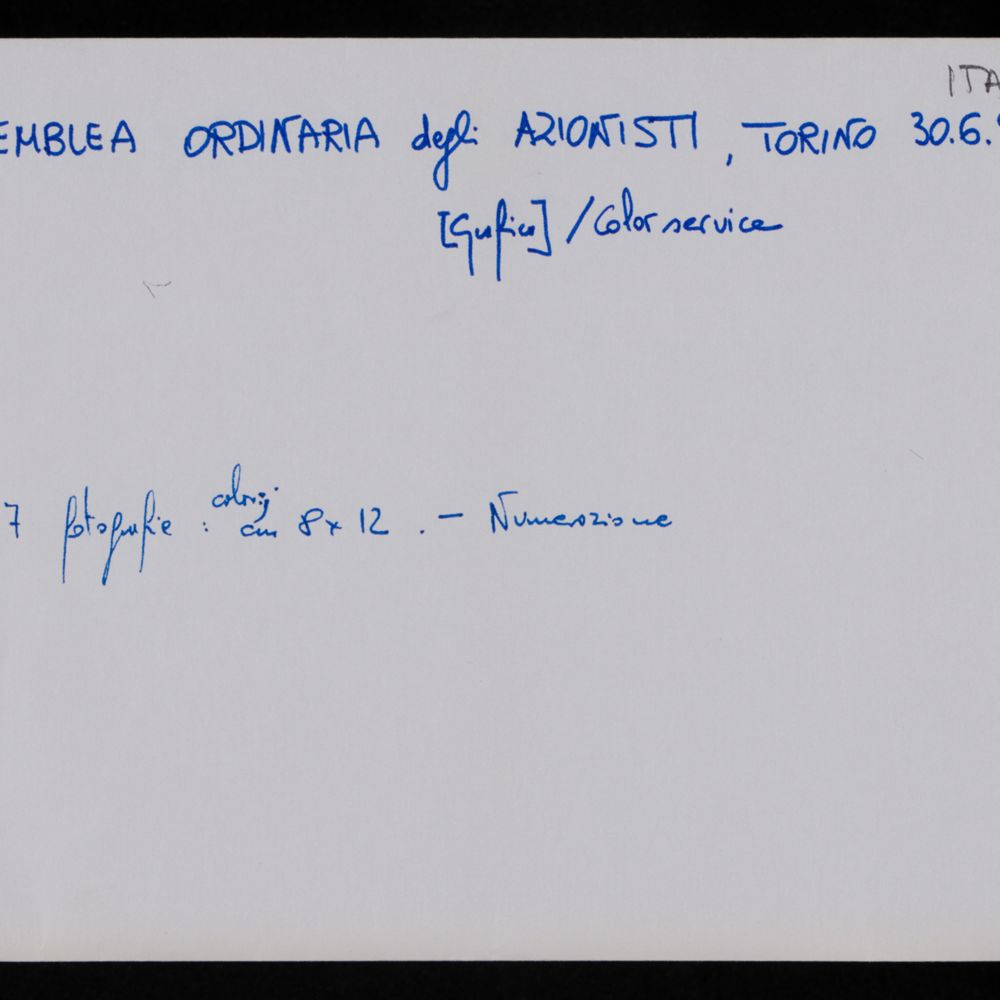 ITA
EMBLEA ORDINARIA degli AZIONISTI, TORINO 30.6.
[Grafica] / Color service
7 fotografie : colori
cm 8x12 . - Numerazione